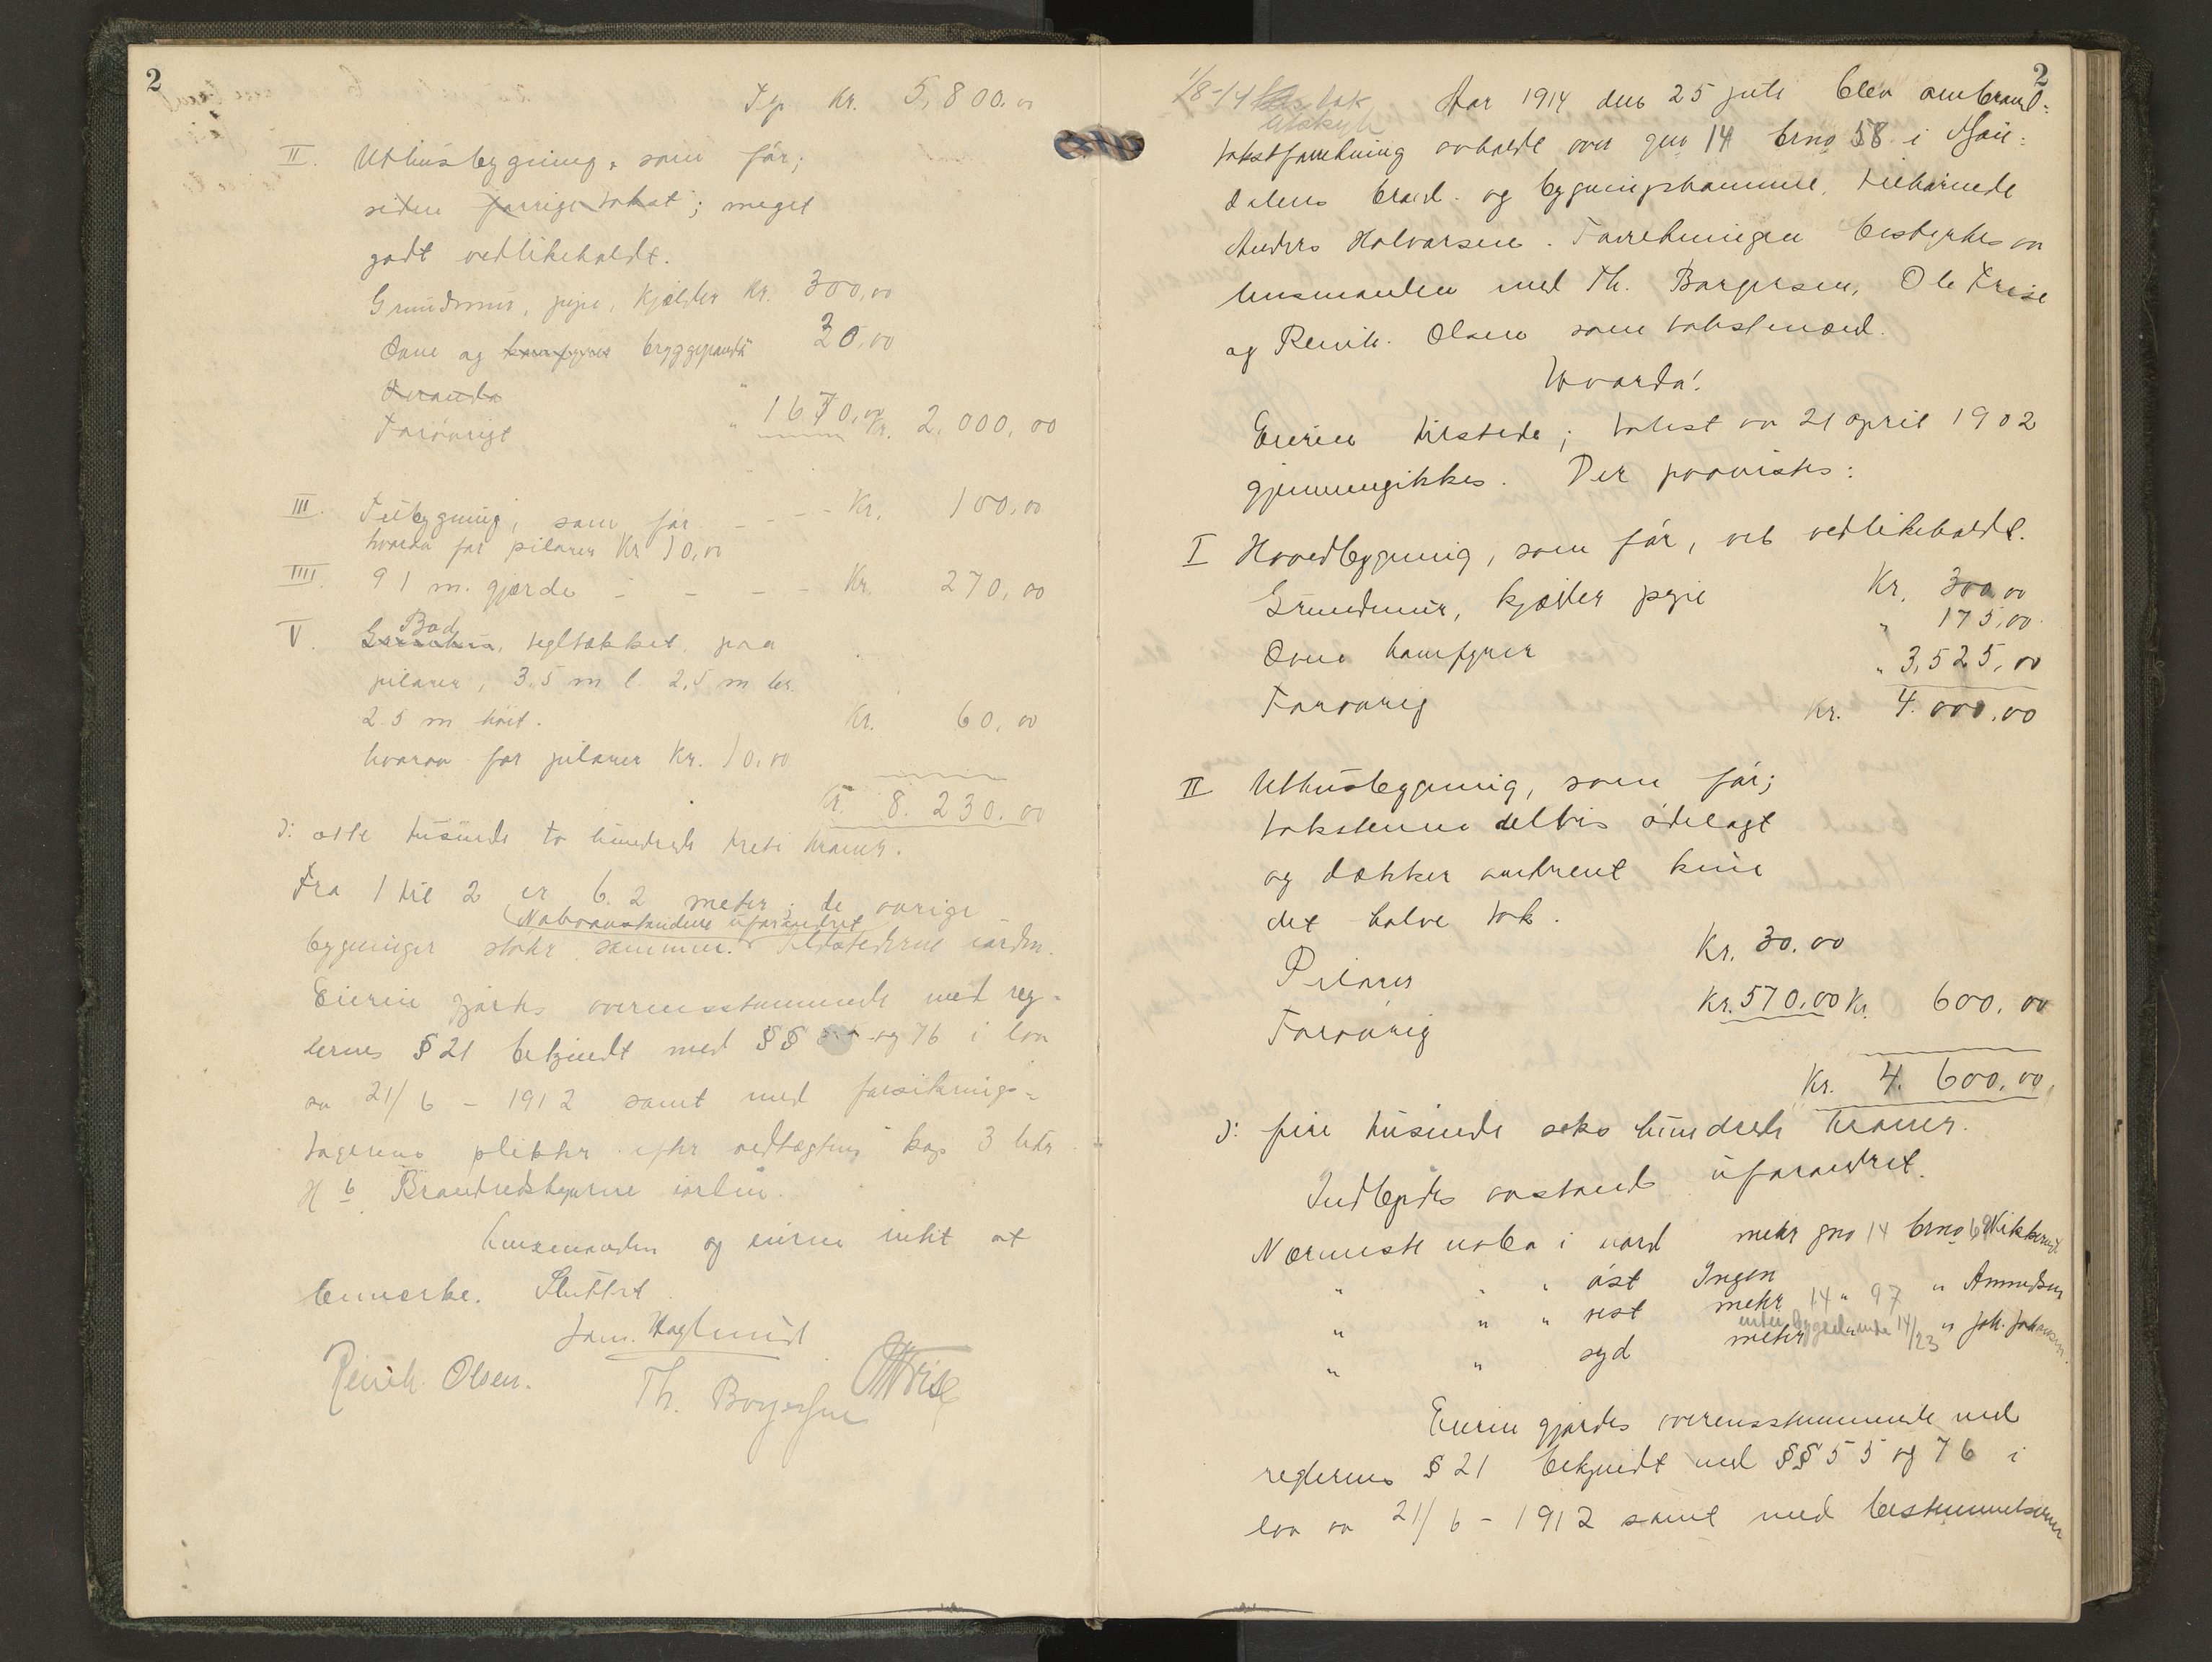 2
Tp. Kr. 5,800.00
II. Uthusbygning, som før;
siden forrige takst; meget
godt vedlikeholdt.
Grundmur, pipe, kjelder Kr. 300,00
Ovne og komfyrer bryggepande " 30,00
Veranda "
Forøvrigt " 1670,00 Kr. 2.000,00
III. Tilbygning, som før - - - - Kr. 100,00
hvorav for pilarer Kr 10,00
IIII. 91 m. gjærde - - - - Kr. 270,00
Bod
V. tegltækket, paa
pilarer, 3.5 m l. 2.5 m br.
2.5 m høit. Kr. 60,00
hvorav for pilarer Kr. 10,00
Kr. 8.230.00
ɔ: otte tusinde to hundrede treti kroner.
Fra 1 til 2 er 6.2 meter; de øvrige
(Naboavstandene uforandret
bygninger støter sammen. Ildstederne iorden.
Eieren gjordes overensstemmende med reg-
lernes § 21 bekjendt med §§ og 76 i lov
av 21/6 - 1912 samt med forsikrings-
tagerens plikter efter vedtægtens kap 3 litr
H 6. Brandredskaperne iorden.
Lensmanden og eieren intet at
bemerke. Sluttet.
Reinh. Olsen. Th. Borgersen OTrise
2
1/8-14 tak
utskrift
Aar 1914 den 25 juli blev ombrand-
takstforretning avholdt over gno 14 brno 58 i Mjøn-
dalens brand- og bygningskommune, tilhørende
Anders Halvorsen. Forretningen bestyrtes av
lensmanden med Th. Borgersen, Ole Trise
og Reinh. Olsen som takstmænd.
Hvorda!
Eieren tilstede; takst av 21 april 1902
gjennemgikkes. Der paavistes:
I Hovedbygning, som før, vel vedlikeholdt.
Grundmur, kjelder pipe Kr. 300,00
Ovne komfyrer " 175,00
Forøvrig " 3,525,00
Kr. 4.000,00
II Uthusbygning, som før;
takstenene delvis ødelagt
og dækker omtrent kun
det halve tak.
Pilarer Kr. 30.00
Forøvrig Kr. 570.00 Kr. 600,00
Kr. 4.600,00,
ɔ: fire tusinde seks hundrede kroner.
Indbyrdes avstand uforandret.
Nærmeste nabo i nord meter gno 14 brno
" " " øst Ingen
" " " vest meter 14 " 97 " Amundsen
" " syd meter 14/23 " Joh. Johansen.
Eieren gjordes overensstemmende med
reglernes § 21 bekjendt med §§ 55 og 76 i
lov av 21/6 - 1912 samt med bestemmelserne